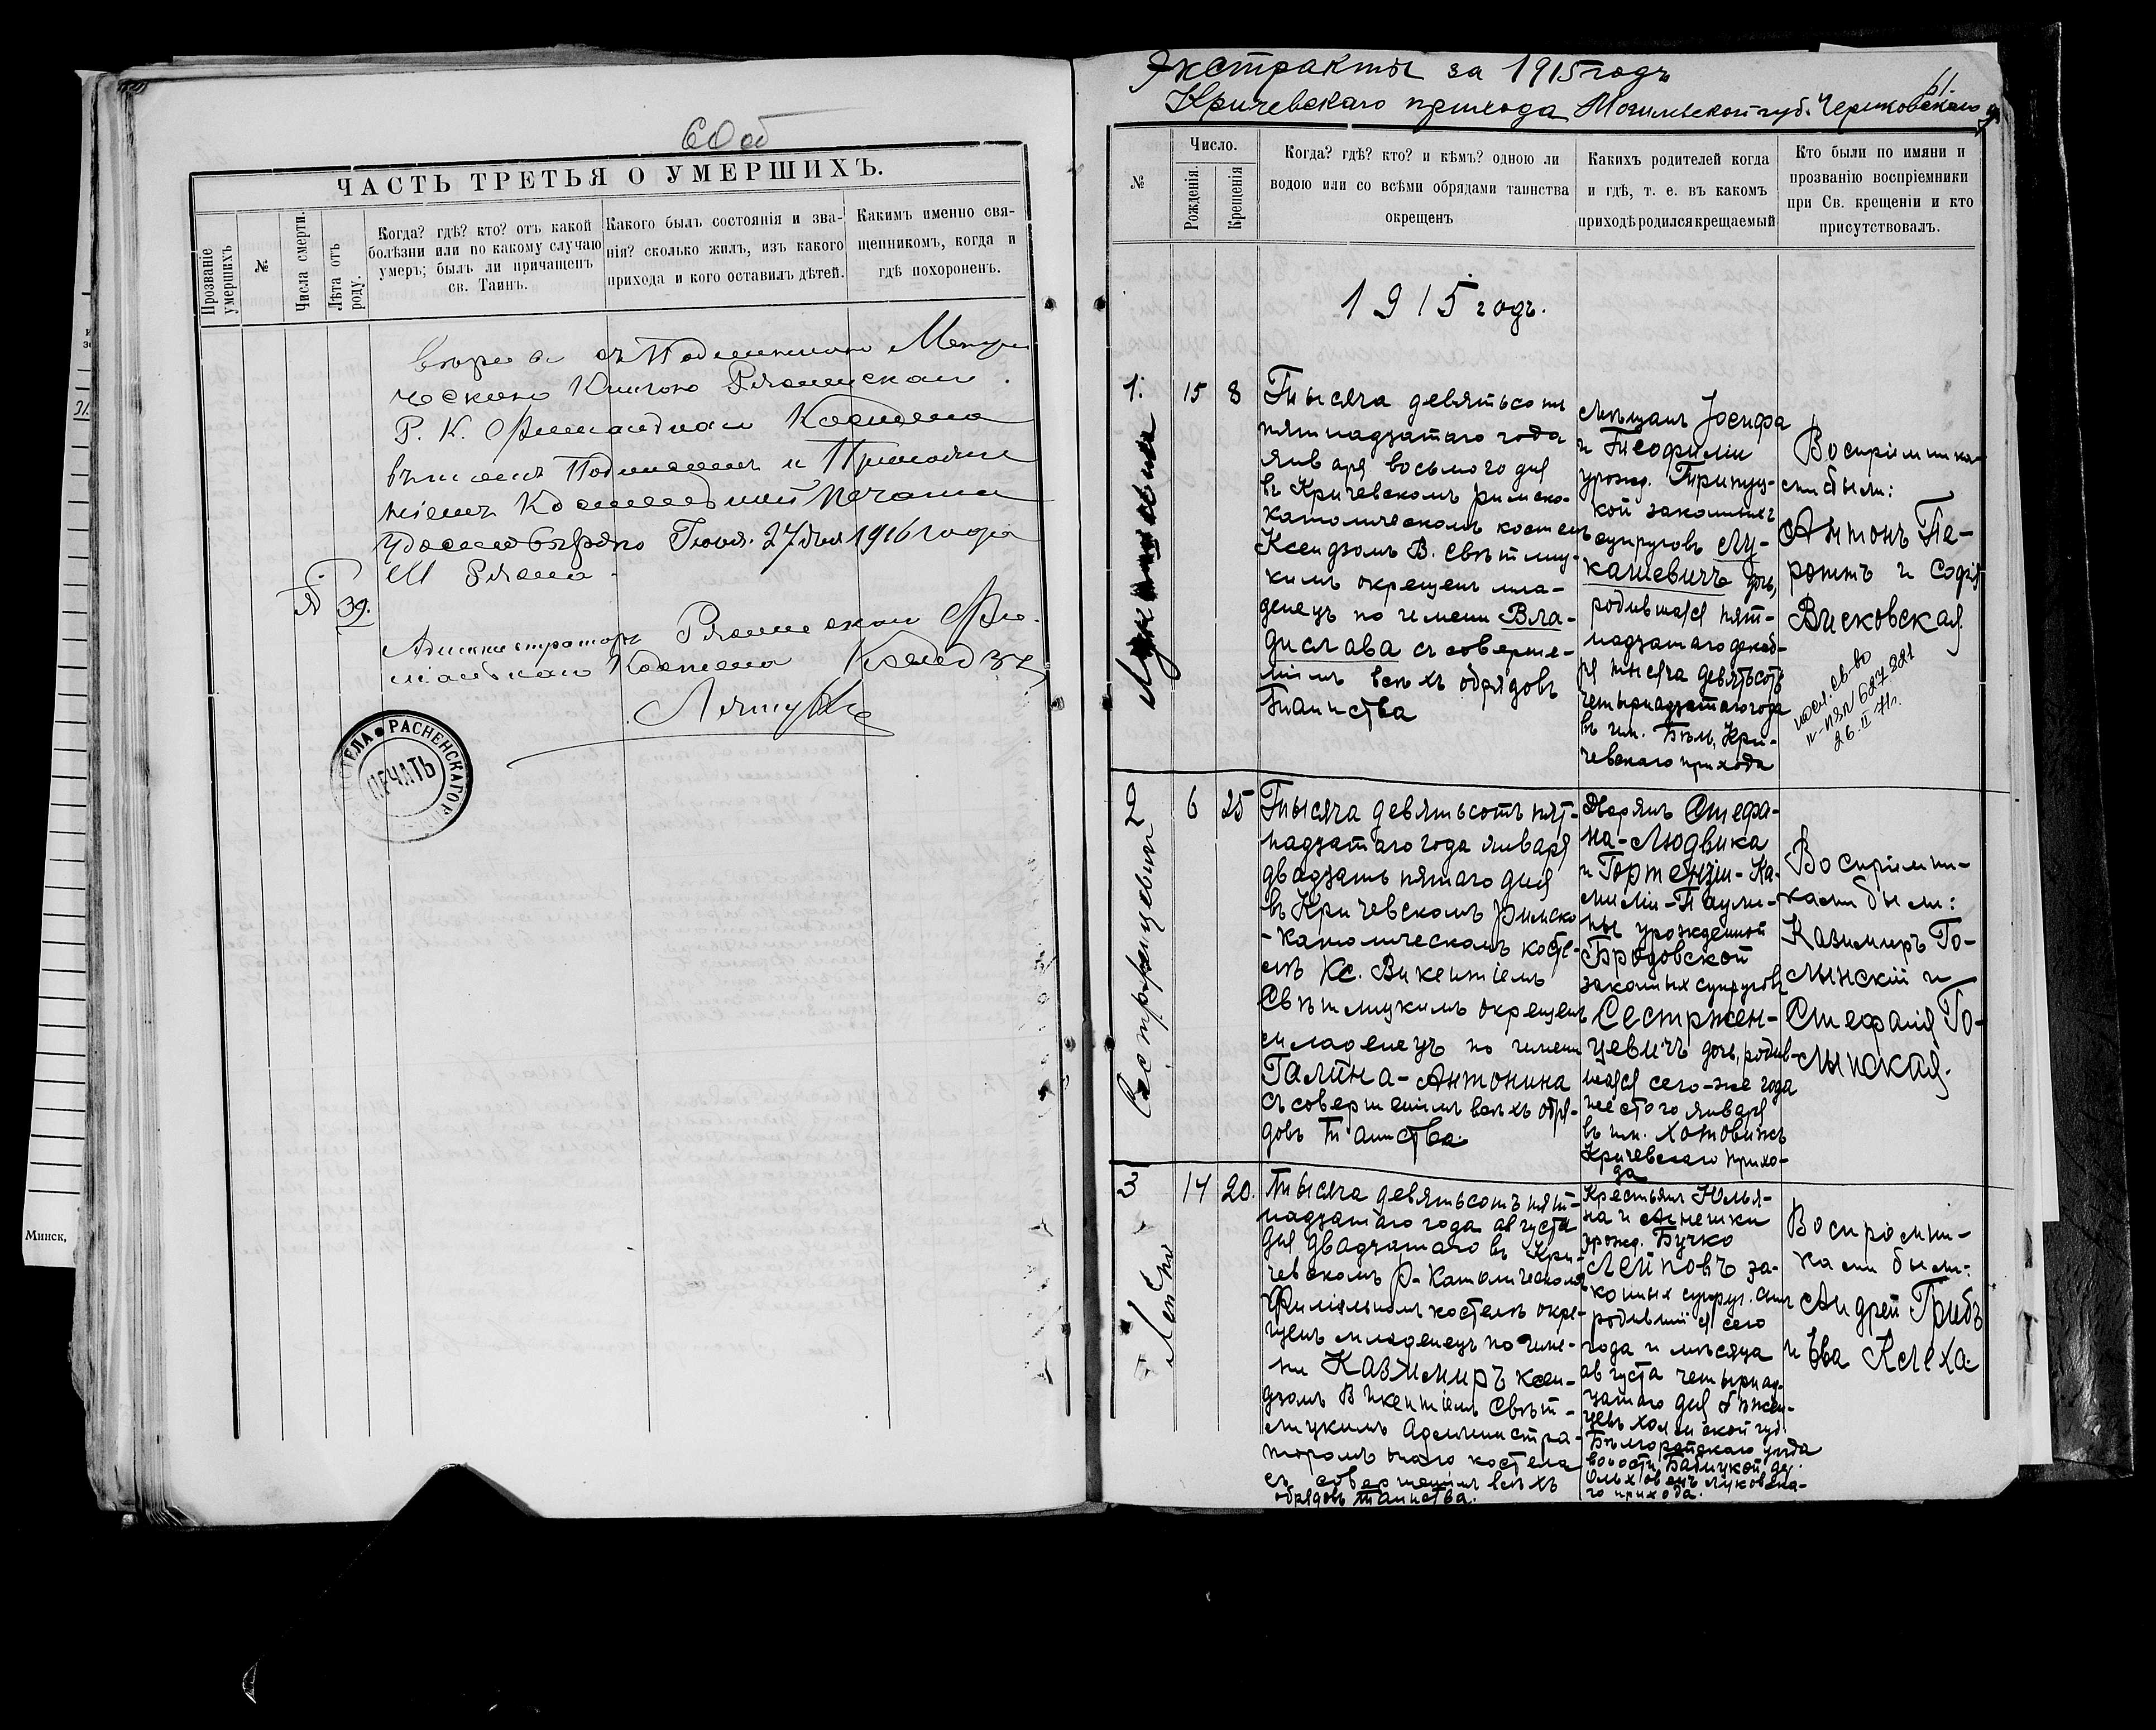 60 об
ЧАСТЬ ТРЕТЬЯ О УМЕРШИХЪ.
Прозваніе умершихъ
№
Числа смерти.
Лѣта отъ роду.
Когда? гдѣ? кто? отъ какой
болѣзни или по какому случаю
умеръ; былъ ли причащенъ
св. Таинъ.
Какого былъ состоянія и зва-
нія? сколько жилъ, изъ какого
прихода и кого оставилъ дѣтей.
Какимъ именно свя-
щенникомъ, когда и
гдѣ похороненъ.
съ Подлинною Метри
ческою Книгою Рясненскаго
Р. К. Филіальнаго Костела
Подписомъ и Приложе
ніемъ Костельной печати
удостовѣряю Іюня 27 дня 1916 года
М Рясна.
№ 39.
Администраторъ Рясненскаго Фи-
ліальнаго Костела Ксендзъ
КОСТЕЛА • РАСНЕНСКАГО Р
ПЕЧАТЬ
Минск,
Экстракты за 1915 годъ
61.
Кричевскаго прихода Могилевской губ. Чериковскаго у.
№
Число.
Рожденія.
Крещенія
Когда? гдѣ? кто? и кѣмъ? одною ли
водою или со всѣми обрядами таинства
окрещенъ
Какихъ родителей когда
и гдѣ, т. е. въ какомъ
приходѣ родился крещаемый
Кто были по имяни и
прозванію воспріемники
при Св. крещеніи и кто
присутствовалъ.
1915 годъ.
1.
15
8
Тысяча девятьсотъ
пятнадзатаго года
января восьмого дня
въ Кричевскомъ римско-
католическомъ костелѣ
Ксендзомъ В. Свѣтлиц-
кимъ окрещенъ мла-
денецъ по имени Вла-
дислава съ соверше-
ніемъ всѣхъ обрядовъ
Таинства
Мѣщанъ Іосифа
и Теофиліи
урожд. Трипуц-
кой законныхъ
супруговъ Лу-
кашевичъ дочь,
родившаяся пят-
надзатаго декаб-
ря тысяча девятьсотъ
четырнадзатаго года
въ им. Бѣл, Кри-
чевскаго прихода
Воспріемника-
ми были:
Антонъ Пе-
роттъ и Софія
Висковская.
посл. св-во
IV-ПЗЛ № 587221
26.II 71г.
Сестрженцевичъ
2
6
25
Тысяча девятьсотъ пят-
надзатаго года января
двадзать пятаго дня
въ Кричевскомъ римско
-католическомъ косте-
лѣ Кс. Викентіемъ
Свѣтлицкимъ окрещенъ
младенецъ по имени
Галина-Антонина
съ совершеніемъ всѣхъ обря-
довъ Таинства.
Дворянъ Стефа-
на-Людвика
и Гортензіи-Ка-
миліи-Паули-
ны урожденной
Бродовской
законныхъ супруговъ
Сестржен-
цевичъ дочь, родив-
шаяся сего-же года
шестого января
въ им. Хотовижъ
Кричевскаго прихо-
да
Воспріемни-
ками были:
Казимиръ Го-
лынскій и
Стефанія Го-
лынская.
3
14
20.
Тысяча девятьсотъ пят-
надзатаго года августа
дня двадзатаго въ Кри-
чевскомъ р-Католическомъ
Филіальномъ костелѣ окре-
щенъ младенецъ по име-
ни Казимиръ ксен-
дзомъ Викентіемъ Свѣт-
лицкимъ Администра-
торомъ онаго костела
съ совершеніемъ всѣхъ
обрядовъ таинства.
Крестьянъ Юлья-
на и Агнешки
урожд. Бучко
законныхъ супруг. сынъ
родившійся сего
года и мѣсяца
августа четырнад-
затаго дня бѣжен-
цевъ Холмской губ.
Бѣлгорайскаго уѣзда
Воспріемни-
ками были:
Андрей Грибъ
и Ева Клеха.